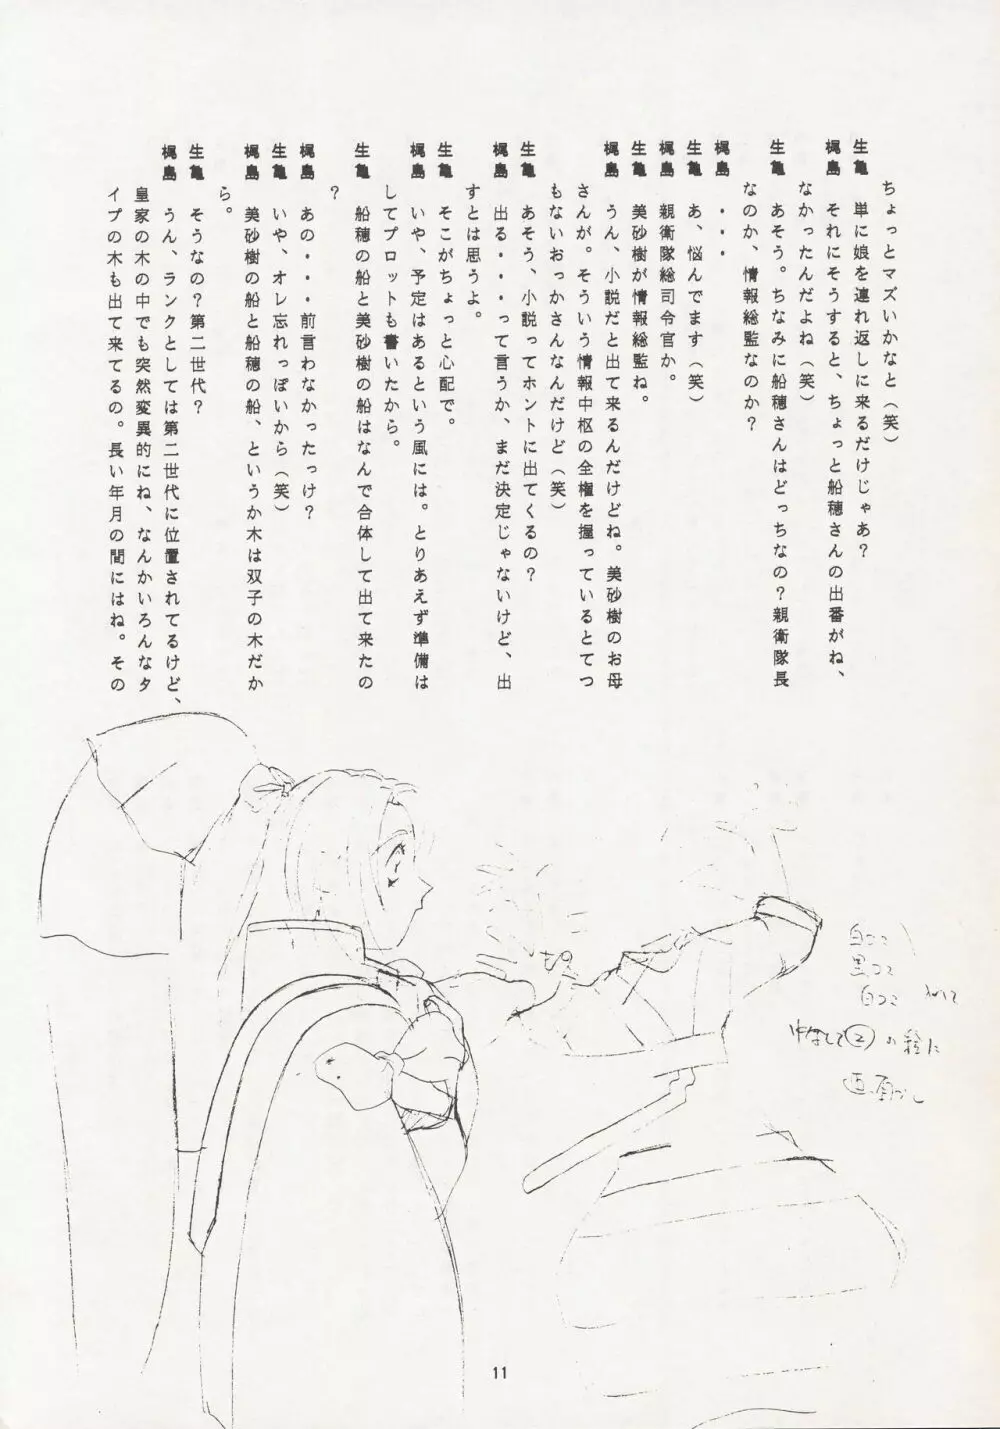 ちょっとマズいかなと（笑）
生亀　単に娘を連れ返しに来るだけじゃあ？
梶島　それにそうすると、ちょっと船穂さんの出番がね、
なかったんだよね（笑）
生亀　あそう。ちなみに船穂さんはどっちなの？親衛隊長
なのか、情報総監なのか？
梶島　・・・
生亀　あ、悩んでます（笑）
梶島　親衛隊総司令官か。
生亀　美砂樹が情報総監ね。
梶島　うん、小説だと出て来るんだけどね。美砂樹のお母
さんが。そういう情報中枢の全権を握っているとてつ
もないおっかさんなんだけど（笑）
生亀　あそう、小説ってホントに出てくるの？
梶島　出る・・・って言うか、まだ決定じゃないけど、出
すとは思うよ。
生亀　そこがちょっと心配で。
梶島　いや、予定はあるという風には。とりあえず準備は
してプロットも書いたから。
生亀　船穂の船と美砂樹の船はなんで合体して出て来たの
？
梶島　あの・・・前言わなかったっけ？
生亀　いや、オレ忘れっぽいから（笑）
梶島　美砂樹の船と船穂の船、というか木は双子の木だか
ら。
生亀　そうなの？第二世代？
梶島　うん、ランクとしては第二世代に位置されてるけど、
皇家の木の中でも突然変異的にね、なんかいろんなタ
イプの木も出て来てるの。長い年月の間にはね。その
白コマ
黒コマ
白コマ 入れて
②の絵に
11